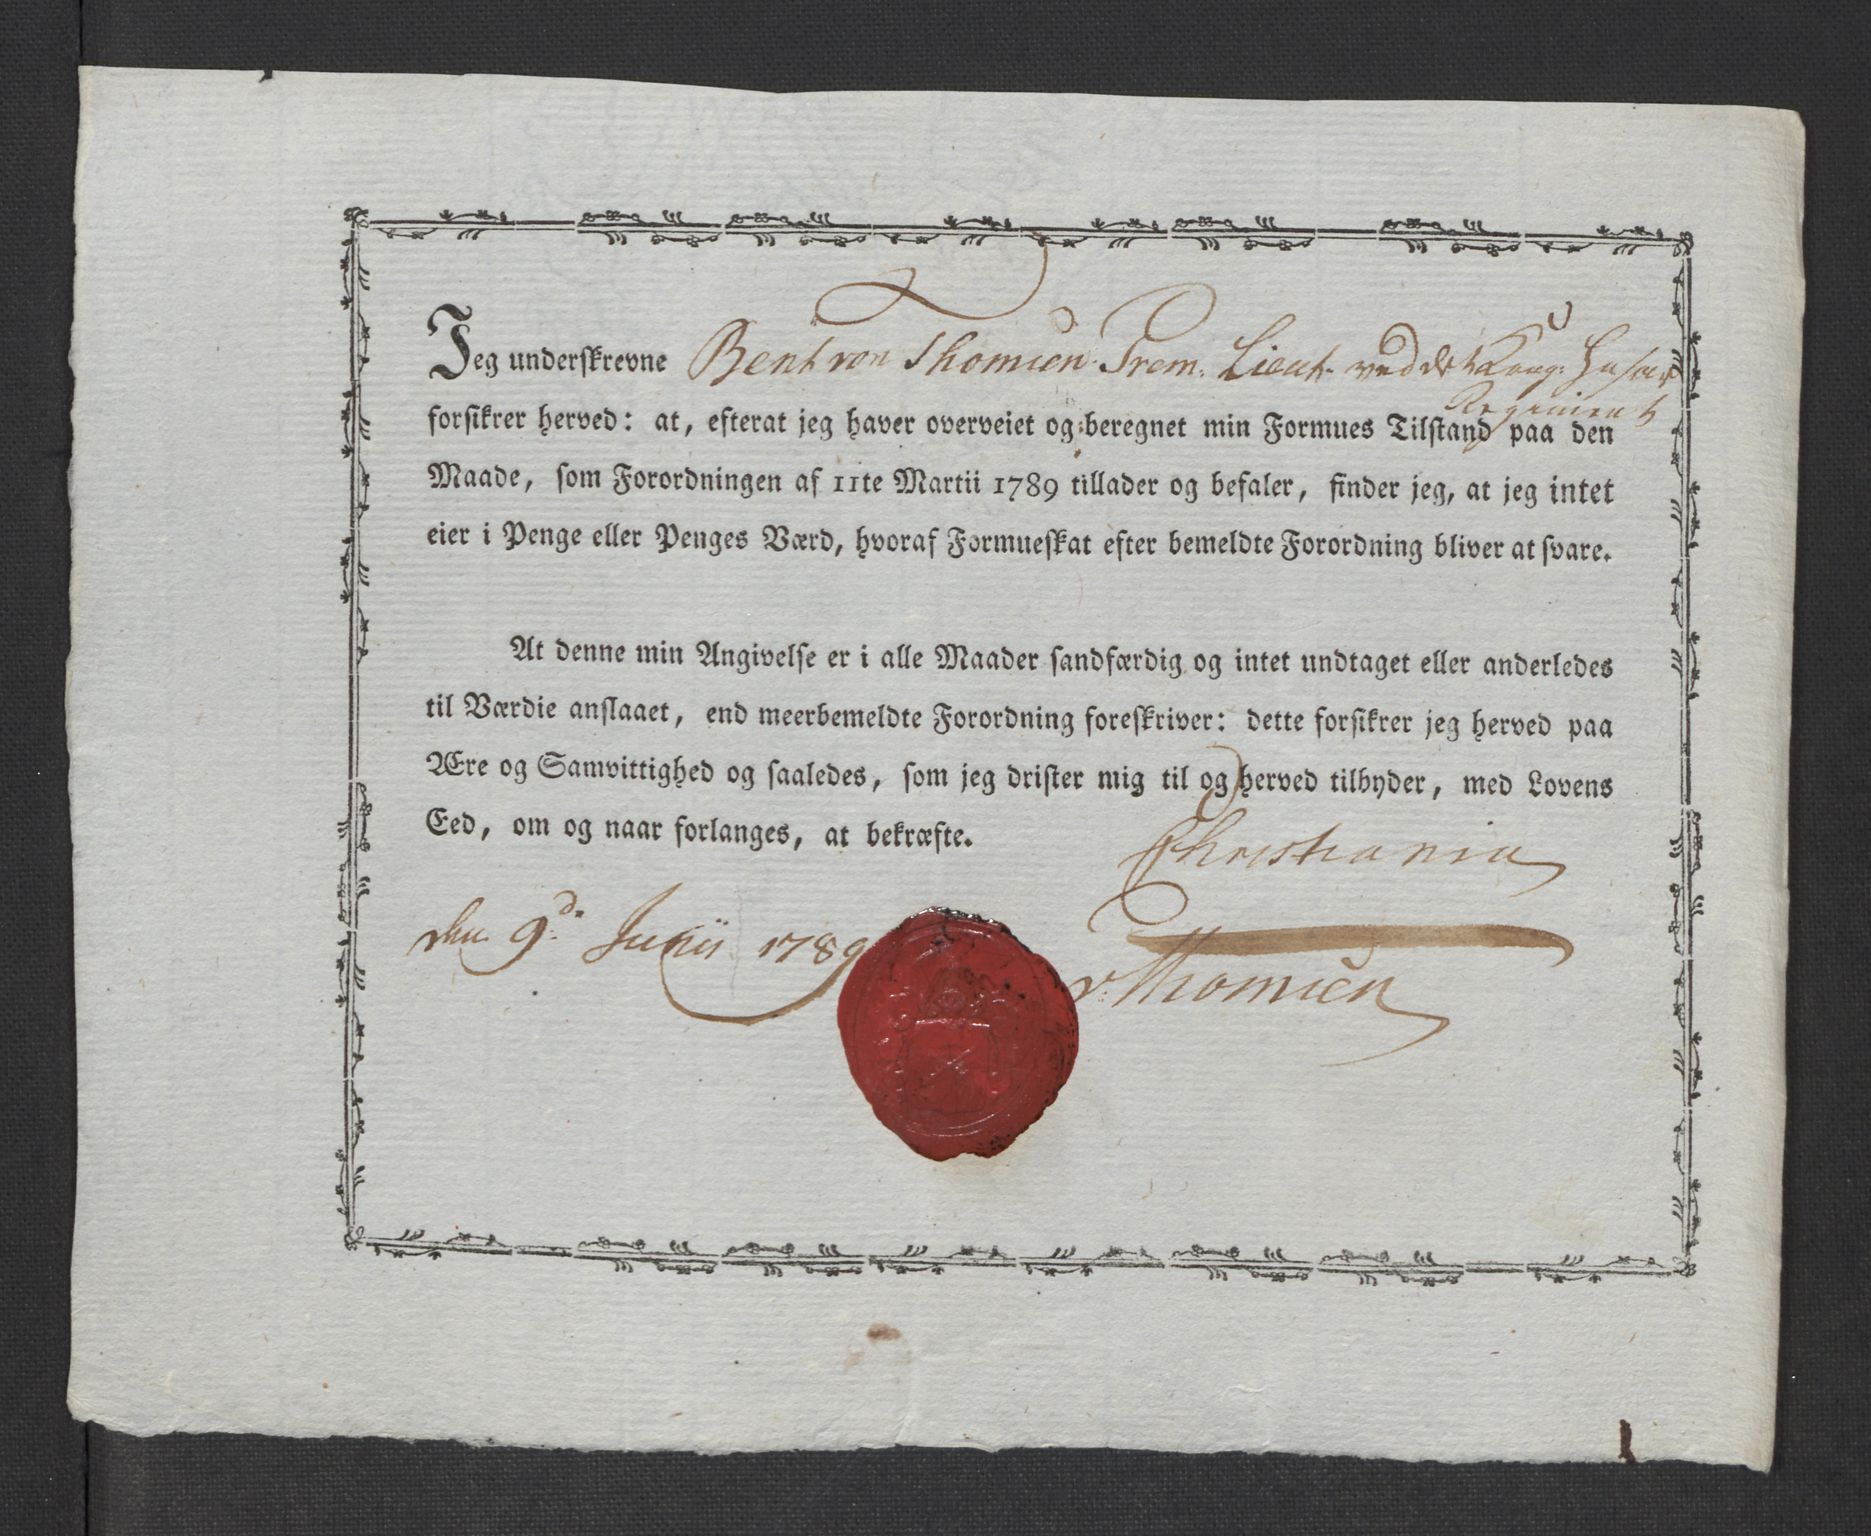 Jeg underskrevne Bent von Thomien Prem: Lieut: ved det Kong: Husar
Regiment
forsikrer herved: at, efterat jeg haver overveiet og beregnet min Formues Tilstand paa den
Maade, som Forordningen af 11te Martii 1789 tillader og befaler, finder jeg, at jeg intet
eier i Penge eller Penges Værd, hvoraf Formueskat efter bemeldte Forordning bliver at svare.
At denne min Angivelse er i alle Maader sandfærdig og intet undtaget eller anderledes
til Værdie anslaaet, end meerbemeldte Forordning foreskriver: dette forsikrer jeg herved paa
Ære og Samvittighed og saaledes, som jeg drister mig til og herved tilbyder, med Lovens
Eed, om og naar forlanges, at bekræfte.
Christiania
den 9d. Junii 1789
v: Thomien